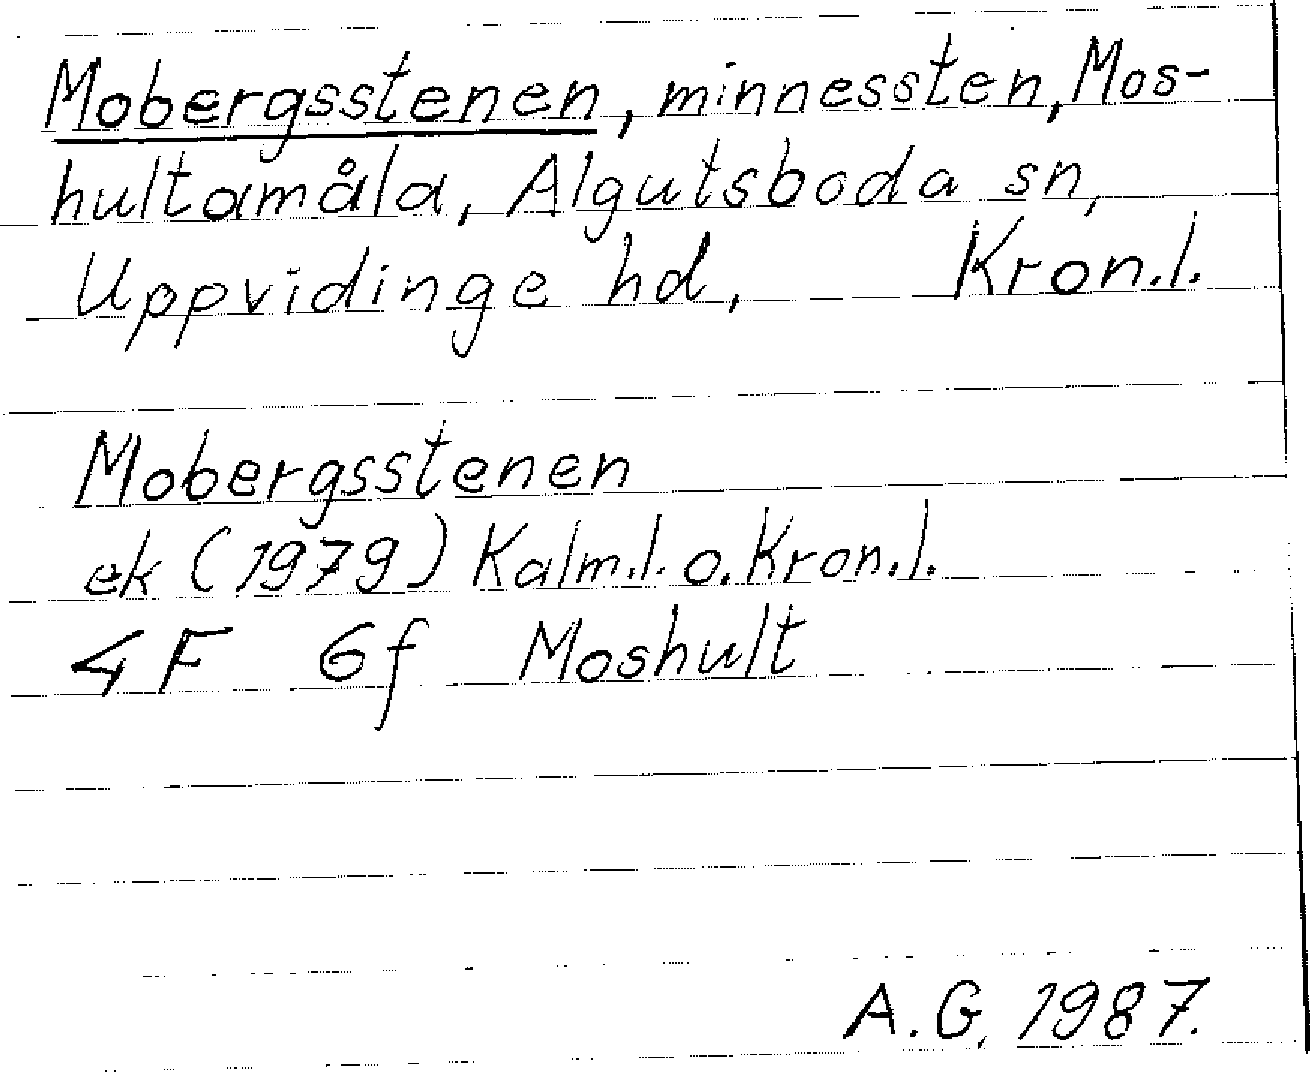 Mobergsstenen, minnessten, Mos-
hultamåla, Algutsboda sn,
Uppvidinge hd, Kron.l.
Mobergsstenen
ek (1979) Kalm.l. o. Kron.l.
4F 6f Moshult
A.G. 1987.